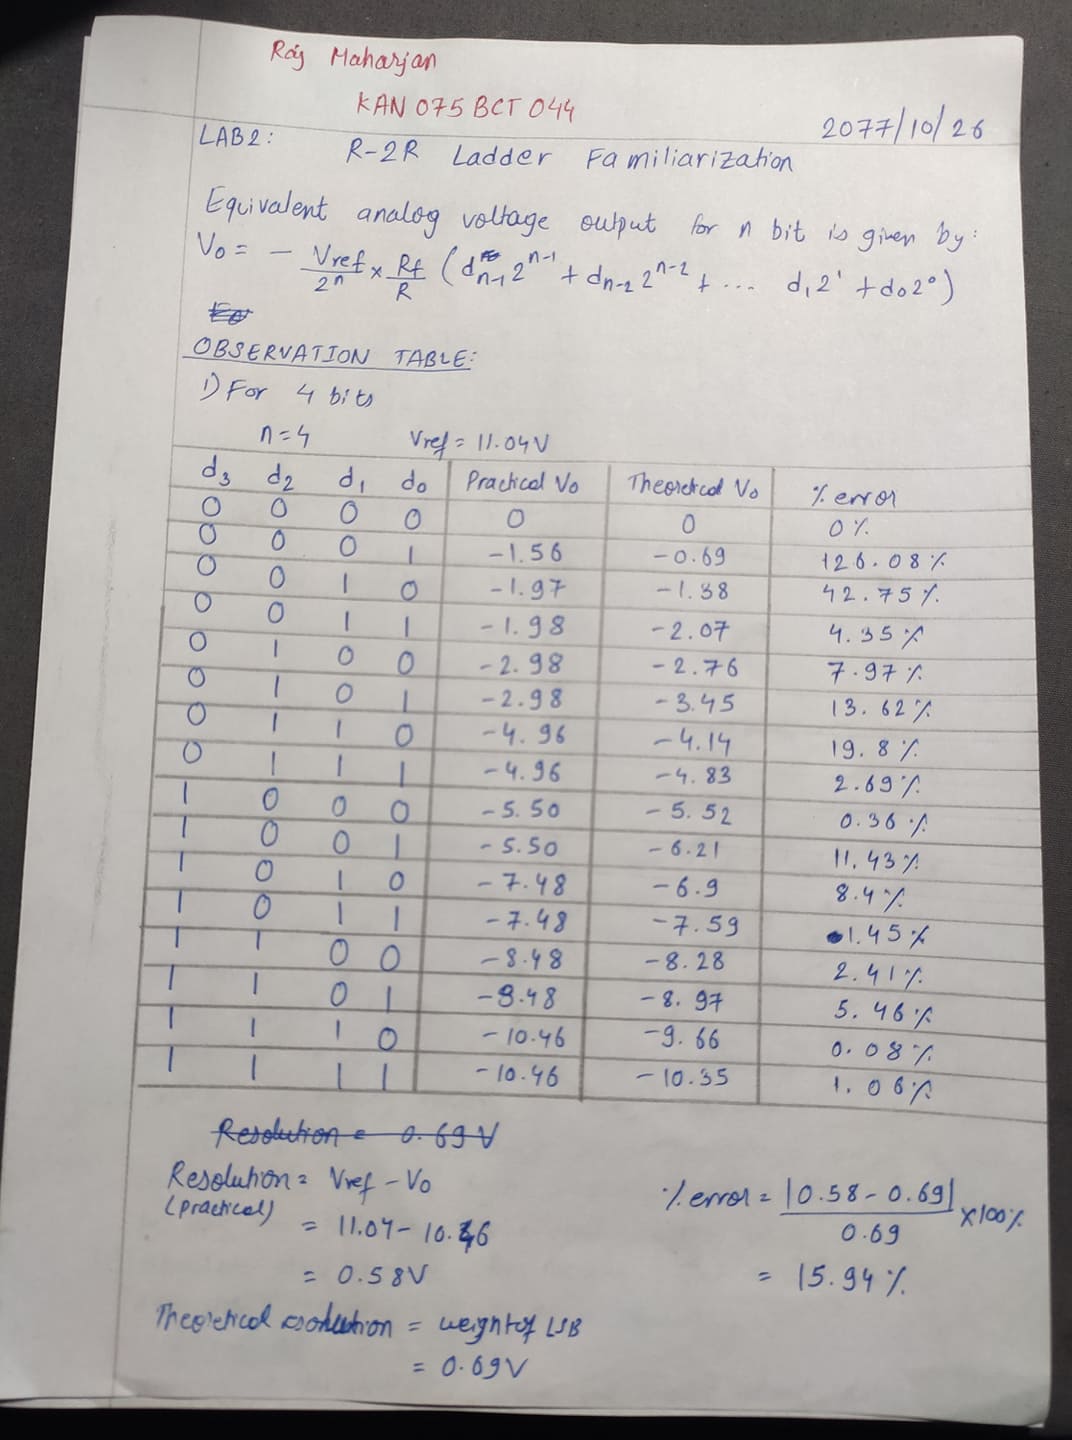 Raj Maharjan
KAN 075 BCT 044
2077/10/26
LAB2: R-2R Ladder Familiarization
Equivalent analog voltage output for n bit is given by:
Vo = - Vref/2ⁿ × Rf/R (dn-1 2ⁿ⁻¹ + dn-2 2ⁿ⁻² + ... d1 2¹ + d0 2⁰)
OBSERVATION TABLE:
1) For 4 bits
n=4 Vref = 11.04V
d3 d2 d1 d0 Practical Vo Theoretical Vo % error
0 0 0 0 0 0 0%
0 0 0 1 -1.56 -0.69 126.08%
0 0 1 0 -1.97 -1.38 42.75%
0 0 1 1 -1.98 -2.07 4.35%
0 1 0 0 -2.98 -2.76 7.97%
0 1 0 1 -2.98 -3.45 13.62%
0 1 1 0 -4.96 -4.14 19.8%
0 1 1 1 -4.96 -4.83 2.69%
1 0 0 0 -5.50 -5.52 0.36%
1 0 0 1 -5.50 -6.21 11.43%
1 0 1 0 -7.48 -6.9 8.4%
1 0 1 1 -7.48 -7.59 1.45%
1 1 0 0 -8.48 -8.28 2.41%
1 1 0 1 -9.48 -8.97 5.46%
1 1 1 0 -10.46 -9.66 0.08%
1 1 1 1 -10.46 -10.35 1.06%
Resolution = 0.69V
Resolution = Vref - Vo
(practical)
= 11.04 - 10.46
= 0.58V
% error = |0.58 - 0.69| / 0.69 × 100%
= 15.94%
Theoretical resolution = weight of LSB
= 0.69V